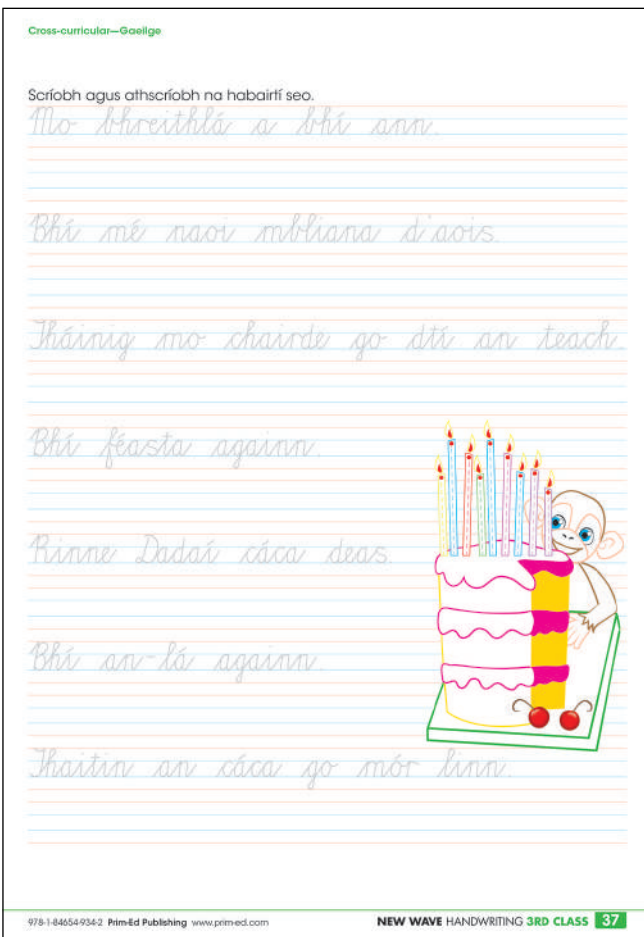 Cross-curricular—Gaeilge
Scríobh agus athscríobh na habairtí seo.
Mo bhreithlá a bhí ann.
Bhí mé naoi mbliana d'aois.
Tháinig mo chairde go dtí an teach.
Bhí féasta againn.
Rinne Dadaí cáca deas.
Bhí an-lá againn.
Thaitin an cáca go mór linn.
978-1-84654-934-2 Prim-Ed Publishing www.prim-ed.com NEW WAVE HANDWRITING 3RD CLASS 37